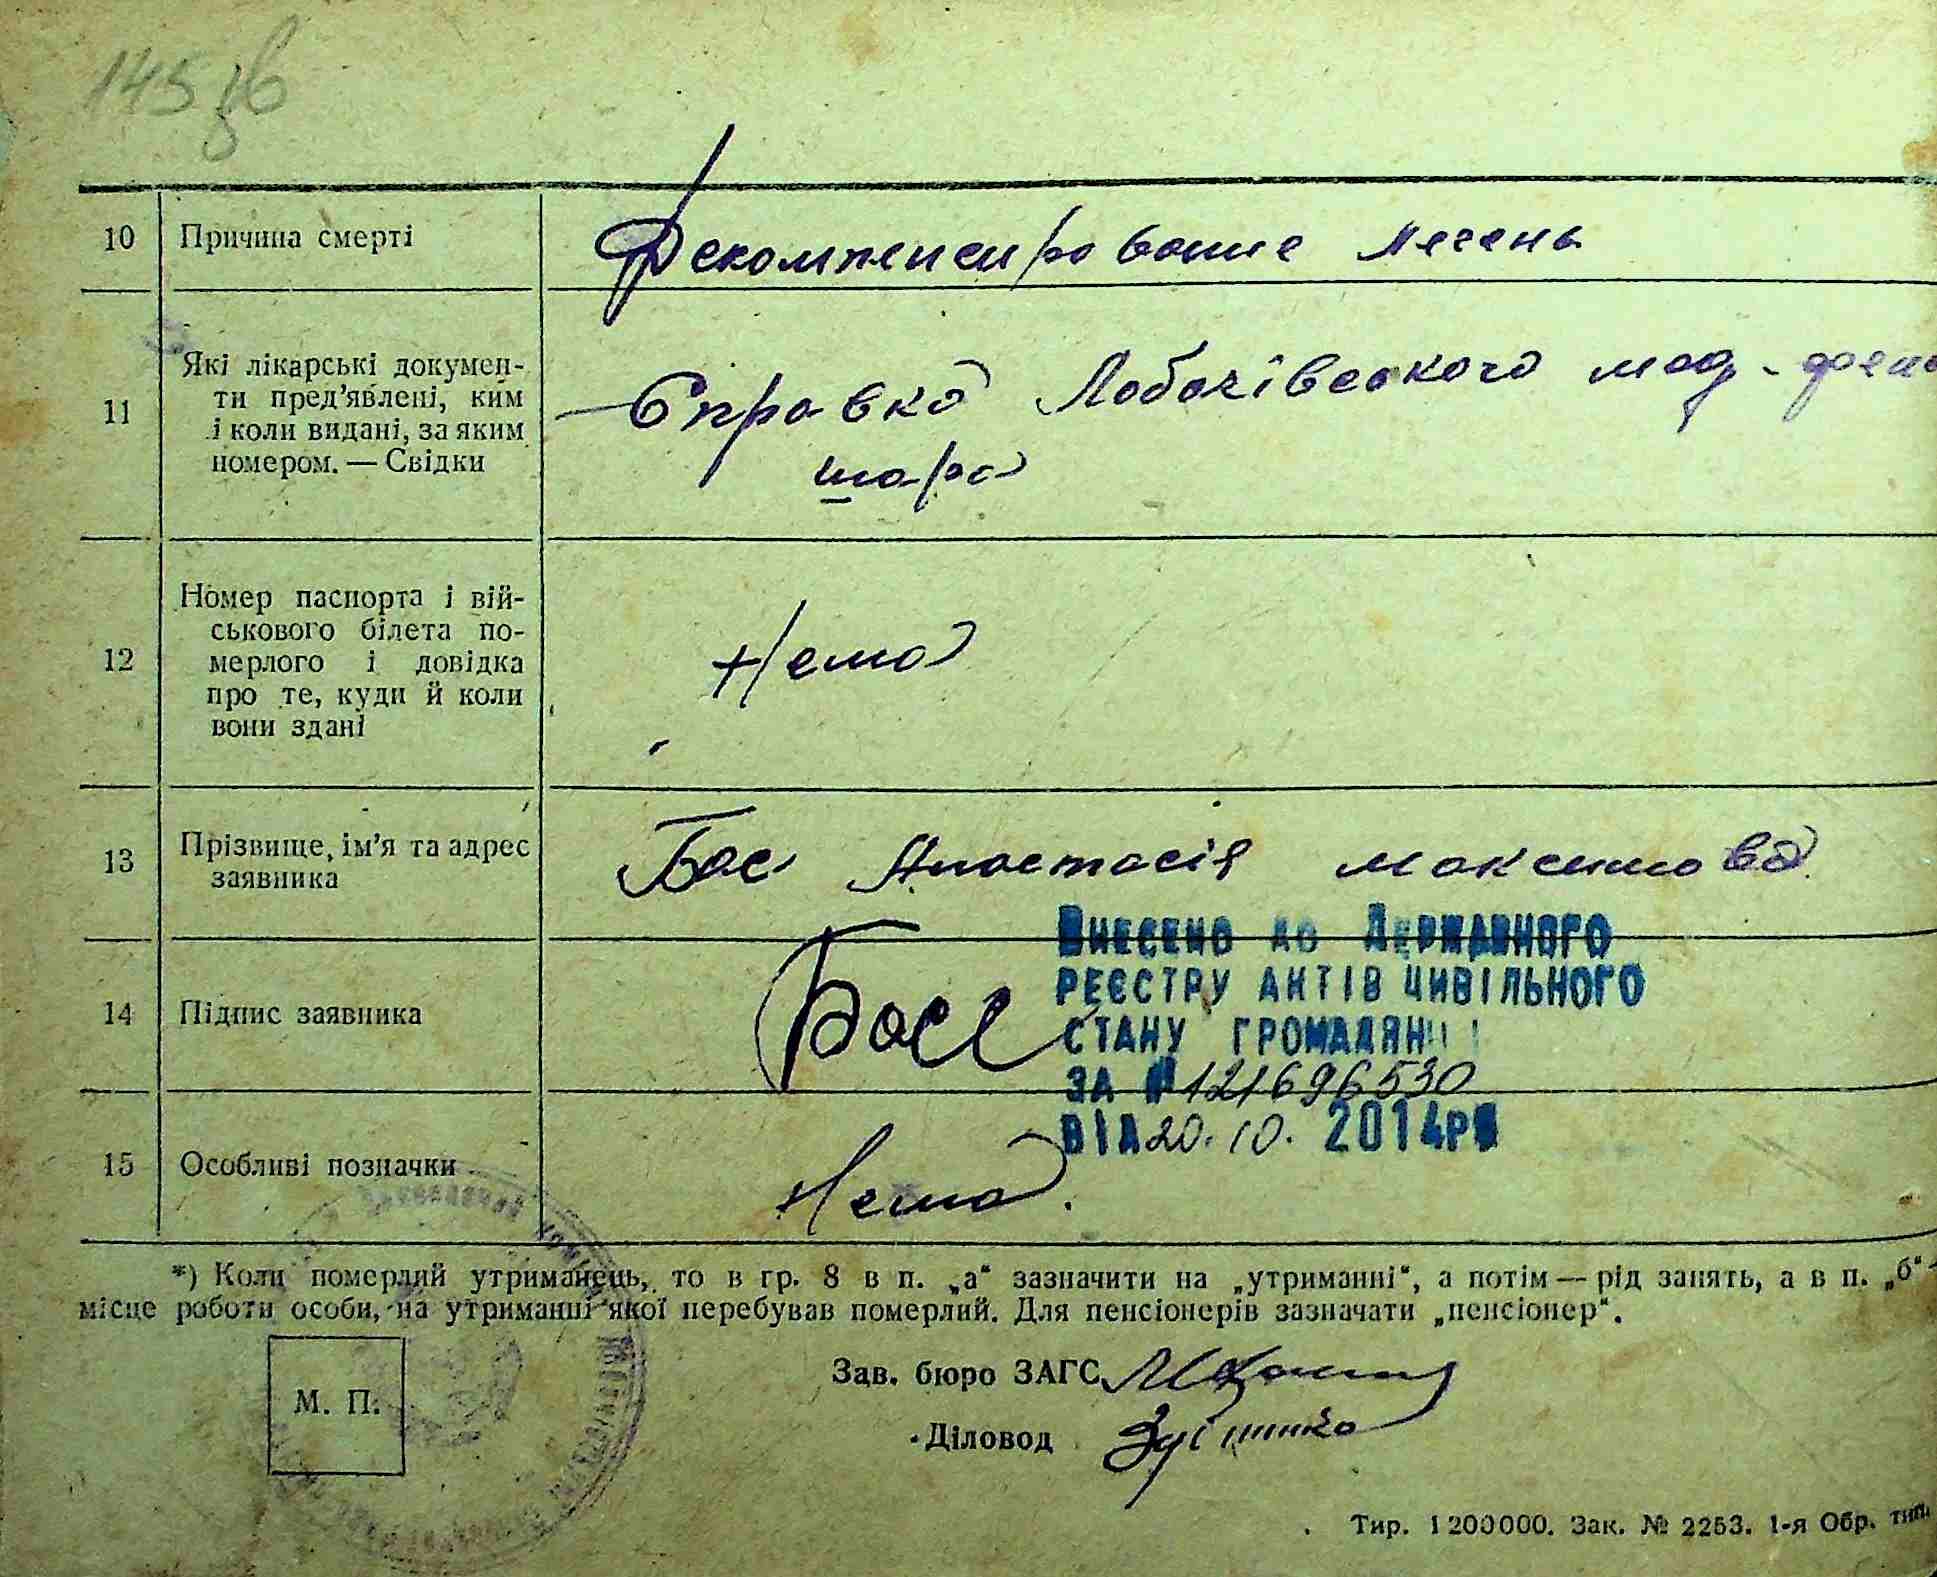 145 зв
10 Причина смерті Декомпенсирование легень
11 Які лікарські докумен-
ти пред'явлені, ким
і коли видані, за яким
номером. — Свідки
Справка Лобачівського мед.
12 Номер паспорта і вій-
ськового білета по-
мерлого і довідка
про те, куди й коли
вони здані
Нема
13 Прізвище, ім'я та адрес
заявника
Бас Анастасія Максимовa
14 Підпис заявника Басс
ВНЕСЕНО ДО ДЕРЖАВНОГО
РЕЄСТРУ АКТІВ ЦИВІЛЬНОГО
СТАНУ ГРОМАДЯН
ЗА № 121696530
ВІД 20.10. 2014РІ
15 Особливі позначки Нема.
*) Коли померлий утриманець, то в гр. 8 в п. „а“ зазначити на „утриманні“, а потім — рід занять, а в п. „б“ —
місце роботи особи, на утриманні якої перебував померлий. Для пенсіонерів зазначати „пенсіонер“.
М. П.
Зав. бюро ЗАГС
Діловод
Тир. 1200000. Зак. № 2253. 1-я Обр. тип.